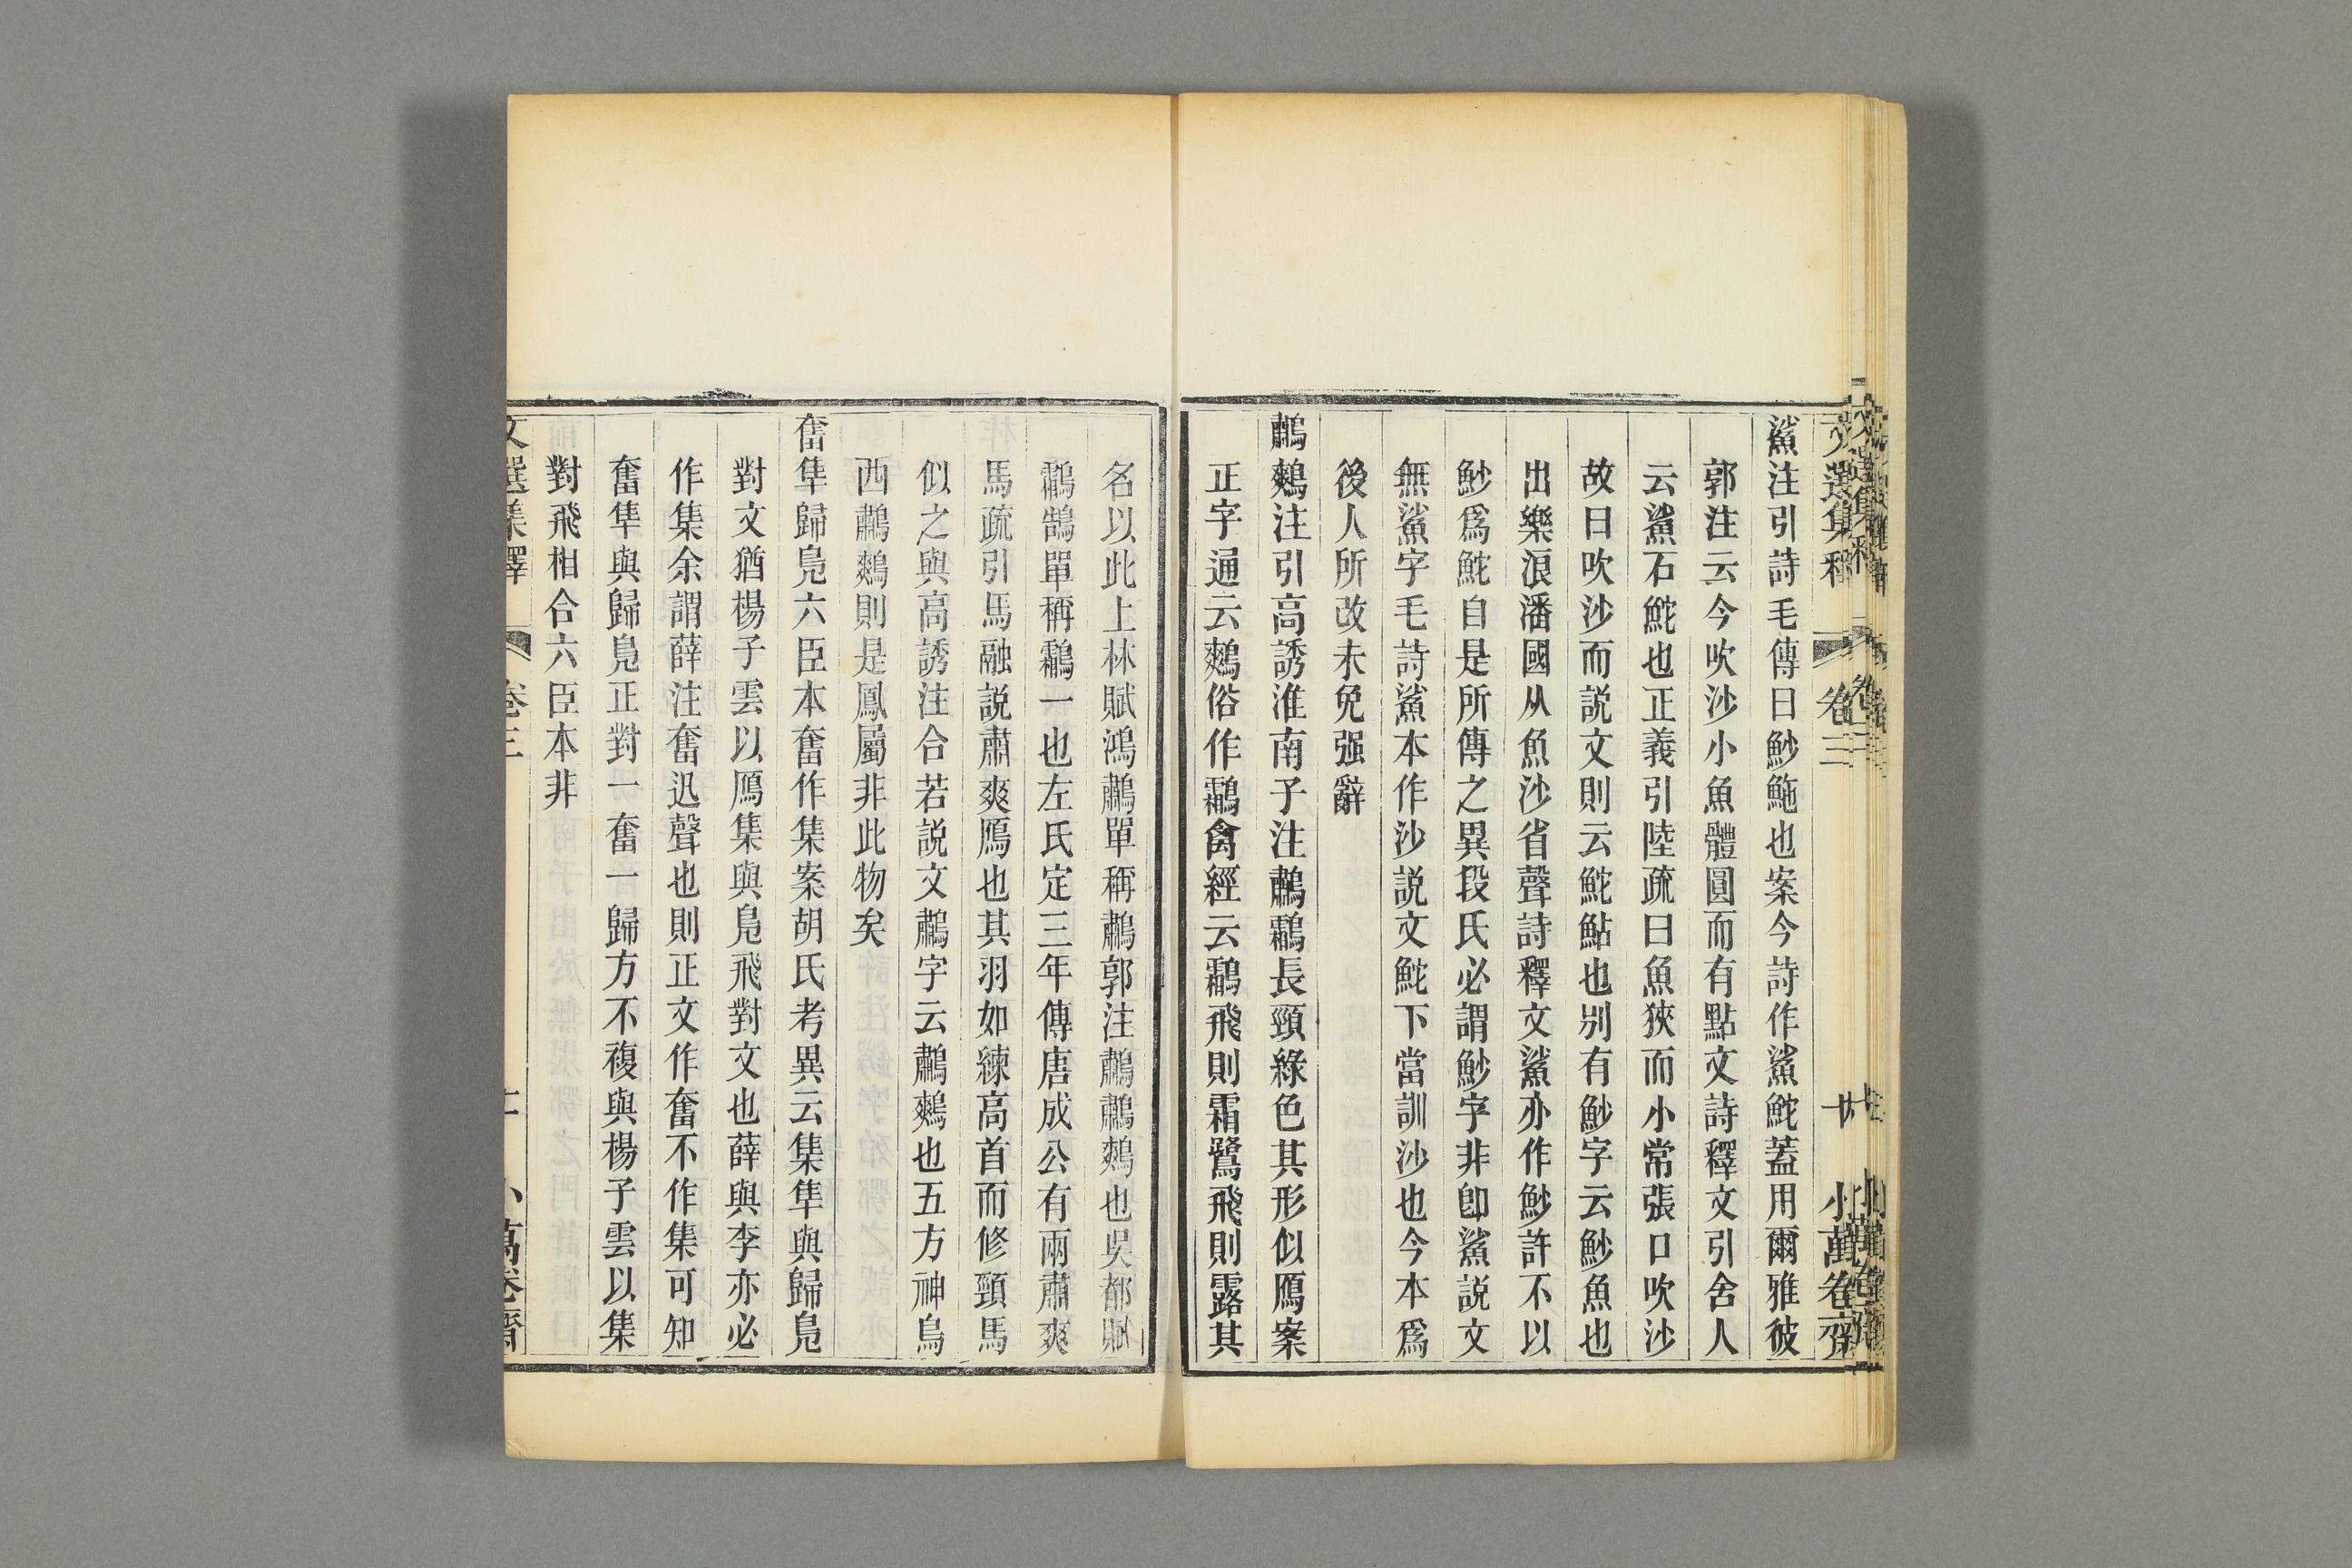 鯊注引詩毛傳曰魦鮀也案今詩作鯊鮀蓋用爾雅彼
郭注云今吹沙小魚體圓而有點文詩釋文引舍人
云鯊石鮀也正義引陸疏曰魚狹而小常張口吹沙
故曰吹沙而說文則云鮀鮎也別有魦字云魦魚也
出樂浪潘國从魚沙省聲詩釋文鯊亦作魦許不以
魦爲鮀自是所傳之異段氏必謂魦字非卽鯊說文
無鯊字毛詩鯊本作沙說文鮀下當訓沙也今本爲
後人所改未免强辭
鷫鷞注引高誘淮南子注鷫鸘長頸綠色其形似鴈案
正字通云鷞俗作鸘禽經云鸘飛則霜鷺飛則露其
名以此上林賦鴻鷫單稱鷫郭注鷫鷫鷞也吳都賦
鸘鵠單稱鸘一也左氏定三年傳唐成公有兩肅爽
馬疏引馬融說肅爽鴈也其羽如練高首而修頸馬
似之與高誘注合若說文鷫字云鷫鷞也五方神鳥
西鷫鷞則是鳳屬非此物矣
奮隼歸鳧六臣本奮作集案胡氏考異云集隼與歸鳧
對文猶楊子雲以鴈集與鳧飛對文也薛與李亦必
作集余謂薛注奮迅聲也則正文作奮不作集可知
奮隼與歸鳧正對一奮一歸方不複與楊子雲以集
對飛相合六臣本非
文選集釋 卷三 小萬卷齋